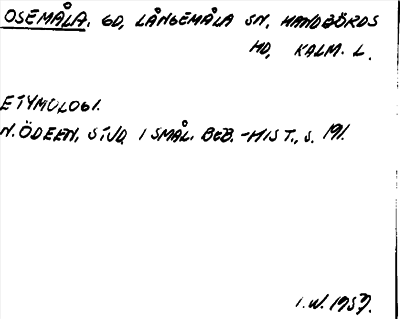 OSEMÅLA. GD, LÅNGEMÅLA SN, HANDBÖRDS
HD, KALM. L.
ETYMOLOGI.
N. ÖDEEN, STUD. I SMÅL. BEB.-HIST., S. 191.
I.W. 1959.